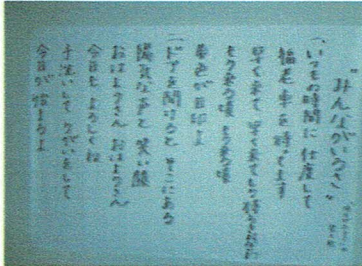 "みんながいるさ"
一、いつもの時間に 仕度して
福老車を待ってます
早く来て 早く来て
もう来る頃 もう来る頃
黄色が目印よ
二、ドアを開けると そこにある
陽気な声と 笑い顔
おはようさん おはようさん
今日も よろしくね
手洗いして うがいをして
今日が 始まるよ